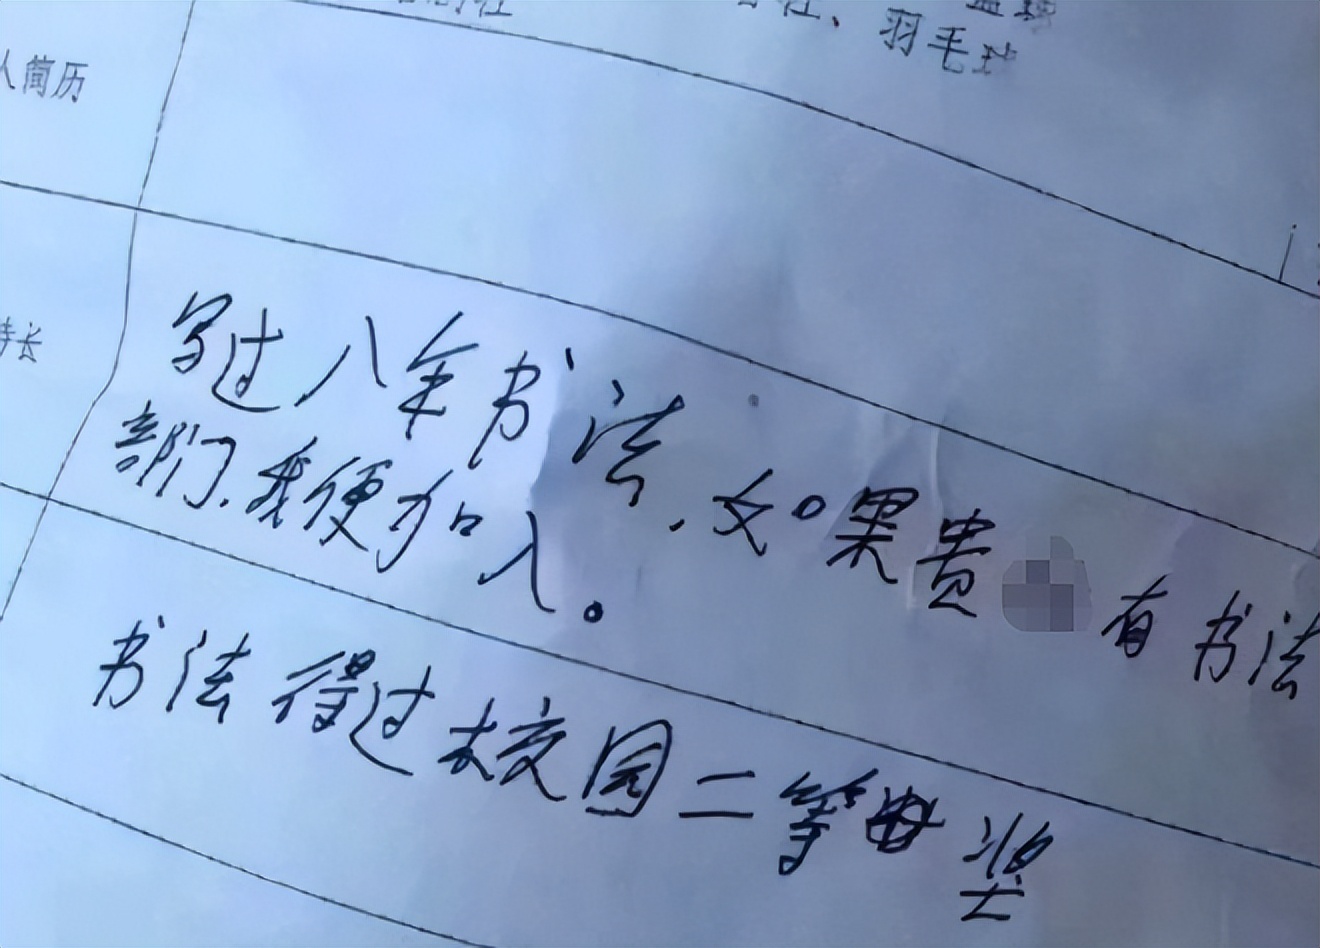 羽毛球
人简历
特长
写过八年书法，如果贵 有书法
部门，我便加入。
书法得过校园二等奖